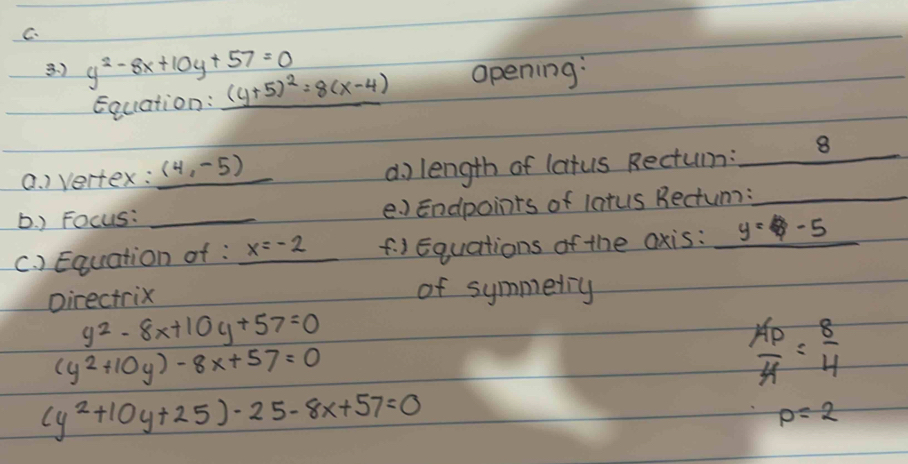 C.
3.) y² - 8x + 10y + 57 = 0
Opening:
Equation: (y+5)² = 8(x-4)
a.) Vertex: (4, -5)
d.) length of latus Rectum: 8
b.) Focus:
e.) Endpoints of latus Rectum:
c.) Equation of : x = -2
f.) Equations of the axis: y = -5
Directrix
of symmetry
y² - 8x + 10y + 57 = 0
(y² + 10y) - 8x + 57 = 0
4p/4 = 8/4
(y² + 10y + 25) - 25 - 8x + 57 = 0
p = 2